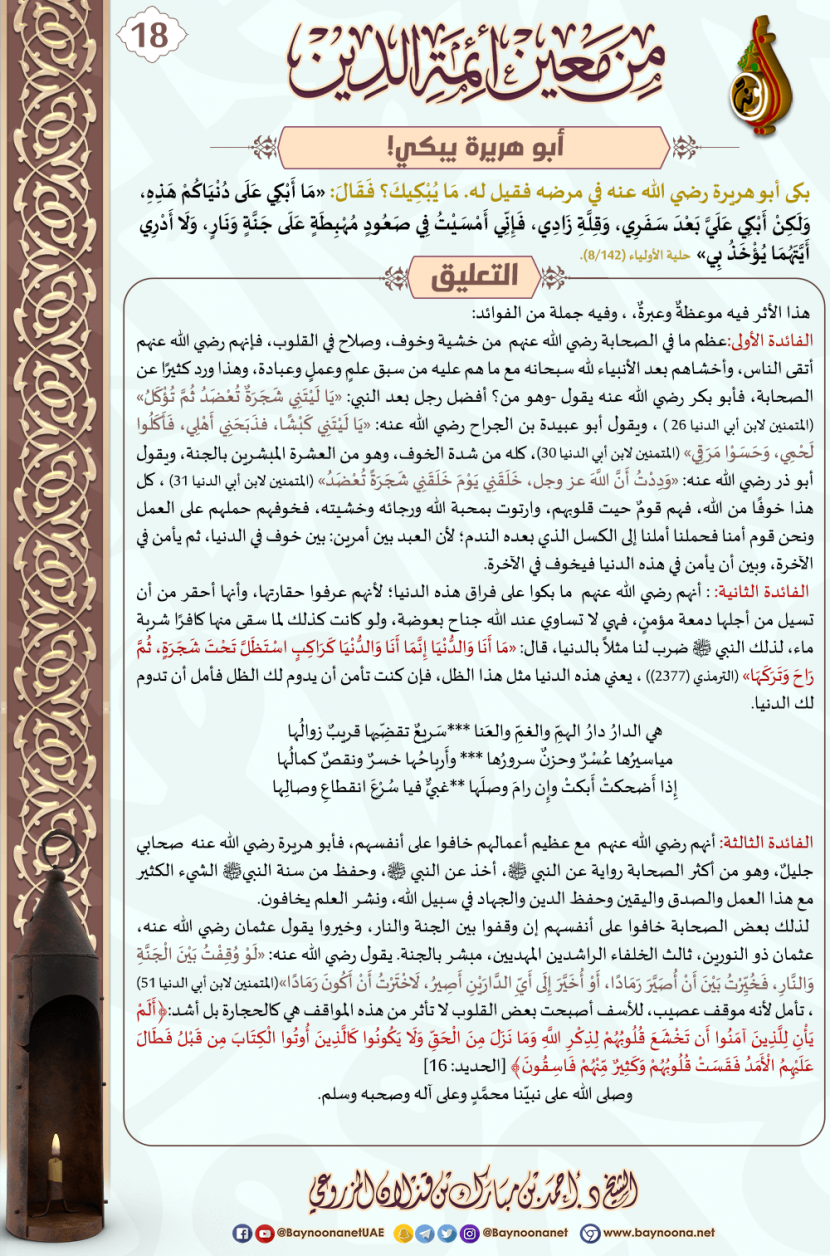 18
من معين أئمة الدين
أبو هريرة يبكي!
بكى أبو هريرة رضي الله عنه في مرضه فقيل له. مَا يُبْكِيكَ؟ فَقَالَ: «مَا أَبْكِي عَلَى دُنْيَاكُمْ هَذِهِ،
وَلَكِنْ أَبْكِي عَلَيَّ بَعْدَ سَفَرِي، وَقِلَّةِ زَادِي، فَإِنِّي أَمْسَيْتُ فِي صَعُودٍ مُهْبِطَةٍ عَلَى جَنَّةٍ وَنَارٍ، وَلَا أَدْرِي
أَيَّتَهُمَا يُؤْخَذُ بِي» حلية الأولياء (8/142).
التعليق
هذا الأثر فيه موعظةٌ وعبرةٌ، ، وفيه جملة من الفوائد:
الفائدة الأولى:عظم ما في الصحابة رضي الله عنهم من خشية وخوف، وصلاح في القلوب، فإنهم رضي الله عنهم
أتقى الناس، وأخشاهم بعد الأنبياء لله سبحانه مع ما هم عليه من سبق علمٍ وعملٍ وعبادة، وهذا ورد كثيرًا عن
الصحابة، فأبو بكر رضي الله عنه يقول -وهو من؟ أفضل رجل بعد النبي: «يَا لَيْتَنِي شَجَرَةٌ تُعْضَدُ ثُمَّ تُؤْكَلُ»
(المتمنين لابن أبي الدنيا 26 ) ، ويقول أبو عبيدة بن الجراح رضي الله عنه: «يَا لَيْتَنِي كَبْشًا، فذَبَحَنِي أَهْلِي، فَأَكَلُوا
لَحْمِي، وَحَسَوْا مَرَقِي» (المتمنين لابن أبي الدنيا 30)، كله من شدة الخوف، وهو من العشرة المبشرين بالجنة، ويقول
أبو ذر رضي الله عنه: «وَدِدْتُ أَنَّ اللَّهَ عز وجل، خَلَقَنِي يَوْمَ خَلَقَنِي شَجَرَةً تُعْضَدُ» (المتمنين لابن أبي الدنيا 31) ، كل
هذا خوفًا من الله، فهم قومٌ حيت قلوبهم، وارتوت بمحبة الله ورجائه وخشيته، فخوفهم حملهم على العمل
ونحن قوم أمنا فحملنا أملنا إلى الكسل الذي بعده الندم؛ لأن العبد بين أمرين: بين خوف في الدنيا، ثم يأمن في
الآخرة، وبين أن يأمن في هذه الدنيا فيخوف في الآخرة.
الفائدة الثانية: : أنهم رضي الله عنهم ما بكوا على فراق هذه الدنيا؛ لأنهم عرفوا حقارتها، وأنها أحقر من أن
تسيل من أجلها دمعة مؤمنٍ، فهي لا تساوي عند الله جناح بعوضة، ولو كانت كذلك لما سقى منها كافرًا شربة
ماء، لذلك النبي ﷺ ضرب لنا مثلاً بالدنيا، قال: «مَا أَنَا وَالدُّنْيَا إِنَّمَا أَنَا وَالدُّنْيَا كَرَاكِبٍ اسْتَظَلَّ تَحْتَ شَجَرَةٍ، ثُمَّ
رَاحَ وَتَرَكَهَا» (الترمذي (2377)) ، يعني هذه الدنيا مثل هذا الظل، فإن كنت تأمن أن يدوم لك الظل فأمل أن تدوم
لك الدنيا.
هي الدارُ دارُ الهمّ والغمّ والعَنا ***سَريعٌ تقضِّيها قريبٌ زوالُها
مياسيرُها عُسْرٌ وحزنٌ سرورُها *** وأَرباحُها خسرٌ ونقصٌ كمالُها
إِذا أَضحكتْ أَبكتْ وإِن رامَ وصلَها **غبيٌّ فيا سُرْعَ انقطاعِ وصالِها
الفائدة الثالثة: أنهم رضي الله عنهم مع عظيم أعمالهم خافوا على أنفسهم، فأبو هريرة رضي الله عنه صحابي
جليلٌ، وهو من أكثر الصحابة رواية عن النبي ﷺ، أخذ عن النبي ﷺ، وحفظ من سنة النبيﷺ الشيء الكثير
مع هذا العمل والصدق واليقين وحفظ الدين والجهاد في سبيل الله، ونشر العلم يخافون.
لذلك بعض الصحابة خافوا على أنفسهم إن وقفوا بين الجنة والنار، وخيروا يقول عثمان رضي الله عنه،
عثمان ذو النورين، ثالث الخلفاء الراشدين المهديين، مبشر بالجنة. يقول رضي الله عنه: «لَوْ وُقِفْتُ بَيْنَ الْجَنَّةِ
وَالنَّارِ، فَخُيِّرْتُ بَيْنَ أَنْ أُصَيَّرَ رَمَادًا، أَوْ أُخَيَّرَ إِلَى أَيِّ الدَّارَيْنِ أَصِيرُ، لَاخْتَرْتُ أَنْ أَكُونَ رَمَادًا»(المتمنين لابن أبي الدنيا 51)
، تأمل لأنه موقف عصيب، للأسف أصبحت بعض القلوب لا تأثر من هذه المواقف هي كالحجارة بل أشد:﴿أَلَمْ
يَأْنِ لِلَّذِينَ آمَنُوا أَن تَخْشَعَ قُلُوبُهُمْ لِذِكْرِ اللَّهِ وَمَا نَزَلَ مِنَ الْحَقِّ وَلَا يَكُونُوا كَالَّذِينَ أُوتُوا الْكِتَابَ مِن قَبْلُ فَطَالَ
عَلَيْهِمُ الْأَمَدُ فَقَسَتْ قُلُوبُهُمْ وَكَثِيرٌ مِّنْهُمْ فَاسِقُونَ﴾ [الحديد: 16]
وصلى الله على نبيّنا محمَّدٍ وعلى آله وصحبه وسلم.
الشيخ د. أحمد بن مبارك بن قذلان المزروعي
@BaynoonanetUAE @Baynoonanet www.baynoona.net